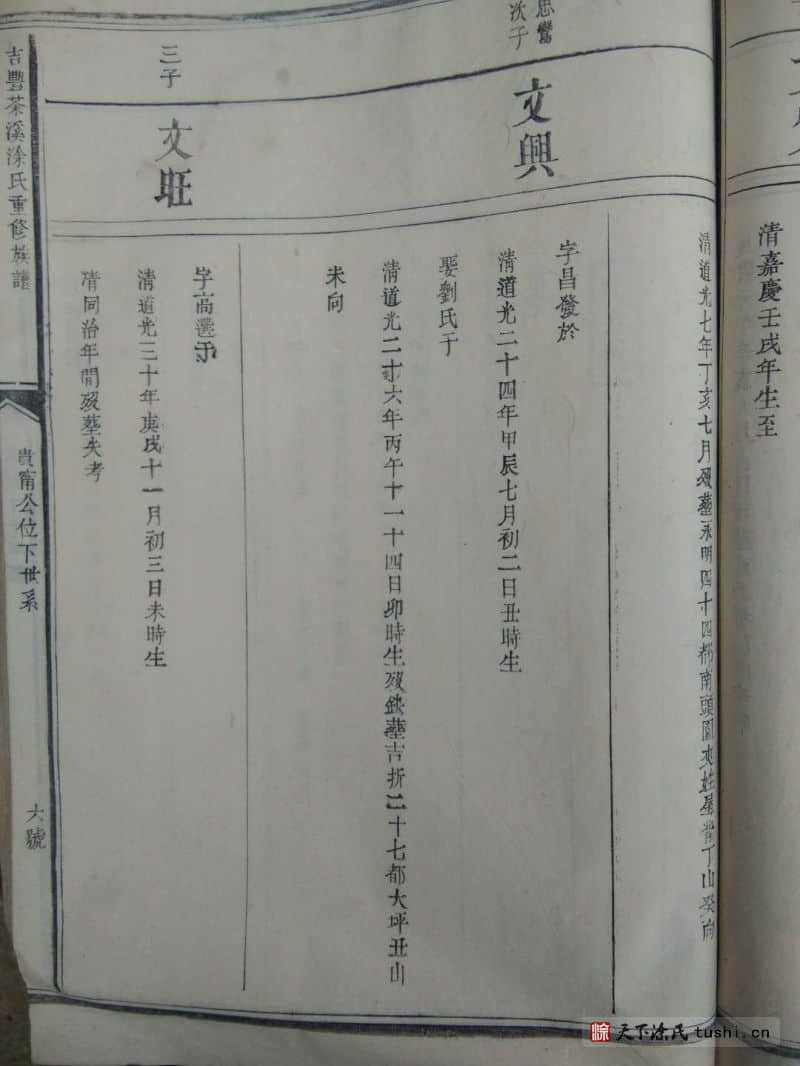 清嘉慶壬戌年生至
思鸞
次子
文興
清道光七年丁亥七月歿墓永明四十四都南頭圓 姓屋背丁山癸向
字昌發於
清道光二十四年甲辰七月初二日丑時生
娶劉氏于
清道光二十六年丙午十一十四日卯時生歿缺墓吉折二十七都大坪丑山
未向
三子
文旺
字高選于
清道光三十年庚戌十一月初三日未時生
清同治年間歿墓失考
吉豐茶溪涂氏重修族譜
貴甯公位下世系
六號
涂 天下涂氏 tushi.cn